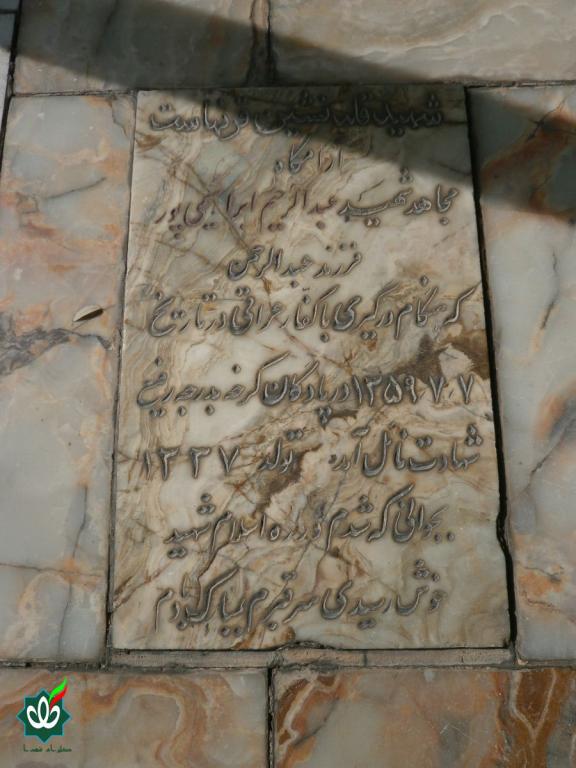 شهید قلب نشین قرنهاست
آرامگاه
مجاهد شهید عبدالرحیم ابراهیمی پور
فرزند عبدالرحمن
که هنگام درگیری با کفار عراقی در تاریخ
۱۳۵۹٫۷٫۷ در پادگان کرخه بدرجه رفیع
شهادت نائل آمد تولد ۱۳۳۷
بجوانی که شدم در ره اسلام شهید
خوش رسیدی سر قبرم بمبارکبادم